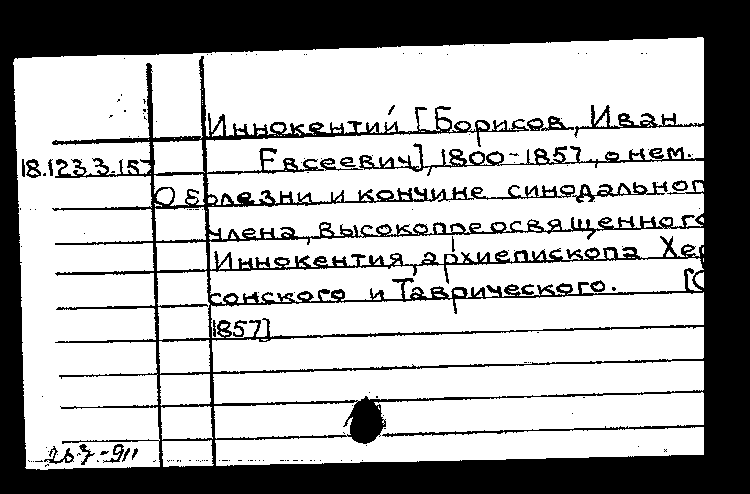 Иннокентий [Борисов, Иван
18.123.3.157 Евсеевич], 1800-1857, о нем.
О болезни и кончине синодальног
члена, высокопреосвященного
Иннокентия, архиепископа Хер
сонского и Таврического. [О
1857]